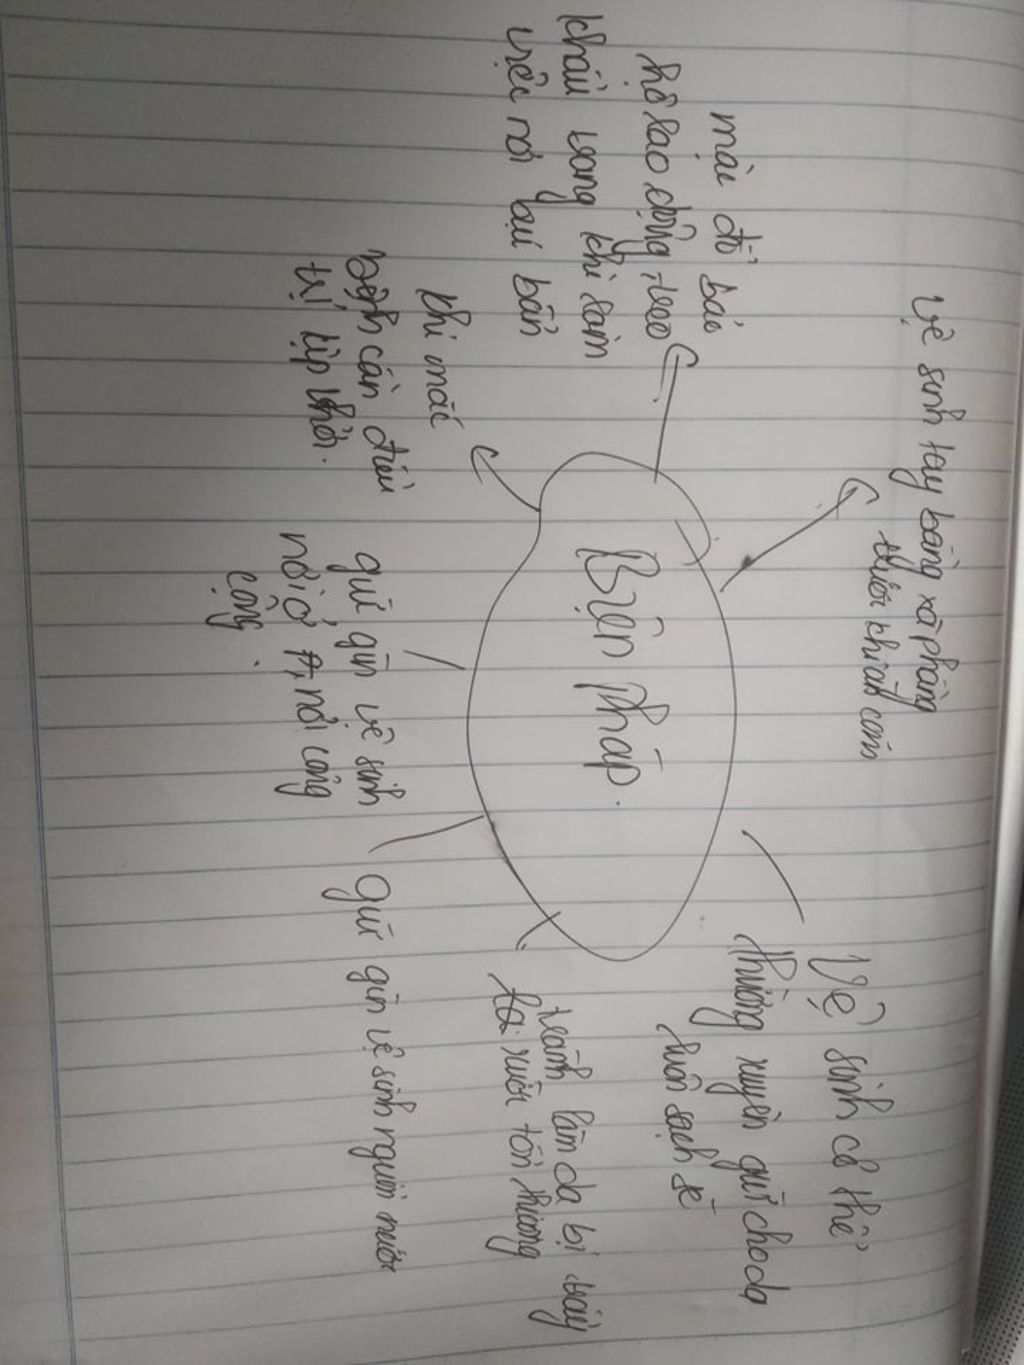 vệ sinh tay bằng xà phòng
trước khi ăn cơm
mặc đồ bảo
hộ lao động, đeo
khẩu trang khi làm
việc nơi bụi bẩn
Biện pháp.
Vệ sinh cơ thể
thường xuyên giữ cho da
luôn sạch sẽ
khi mắc
bệnh cần điều
trị kịp thời.
tránh làm da bị
xước tổn thương
giữ gìn vệ sinh
nơi ở, nơi công
cộng.
Giữ gìn vệ sinh nguồn nước